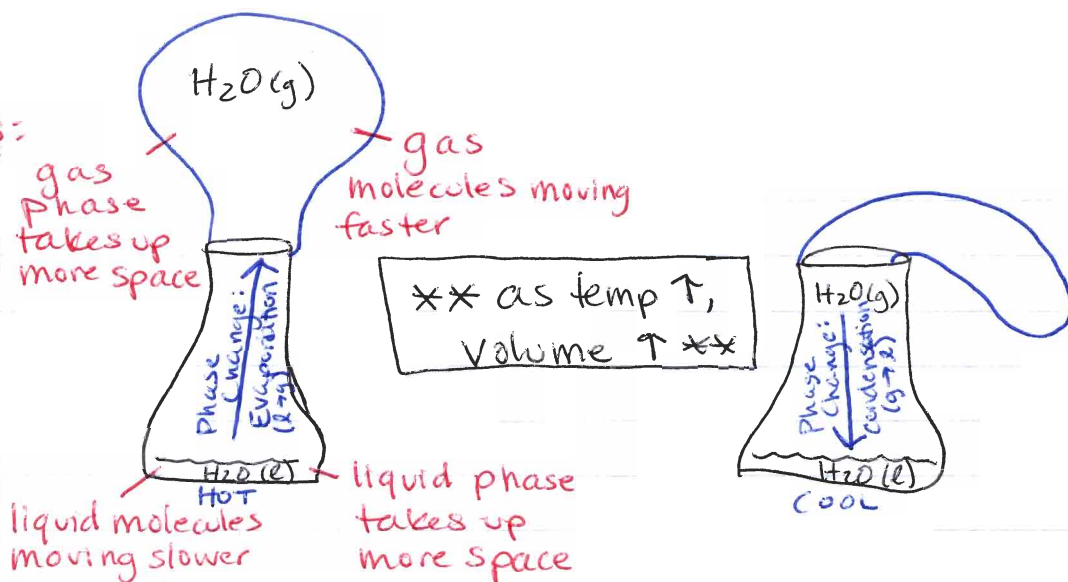 H₂O(g)
s:
gas
phase
takes up
more space
gas
molecules moving
faster
Phase
Change:
Evaporation
(l→g)
H₂O(l)
HOT
liquid molecules
moving slower
liquid phase
takes up
more space
** as temp ↑,
volume ↑ **
H₂O(g)
Phase
Change:
Condensation
(g→l)
H₂O(l)
COOL